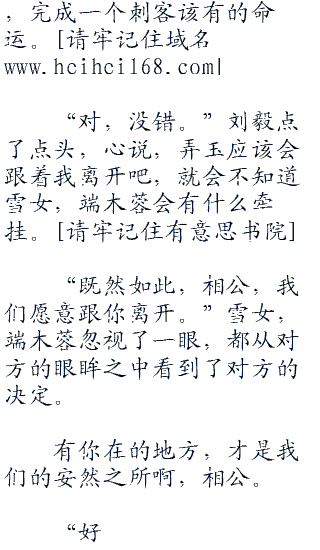 ，完成一个刺客该有的命
运。[请牢记住域名
www.hcihci168.com|
“对，没错。”刘毅点
了点头，心说，弄玉应该会
跟着我离开吧，就会不知道
雪女，端木蓉会有什么牵
挂。[请牢记住有意思书院]
“既然如此，相公，我
们愿意跟你离开。”雪女，
端木蓉忽视了一眼，都从对
方的眼眸之中看到了对方的
决定。
有你在的地方，才是我
们的安然之所啊，相公。
“好